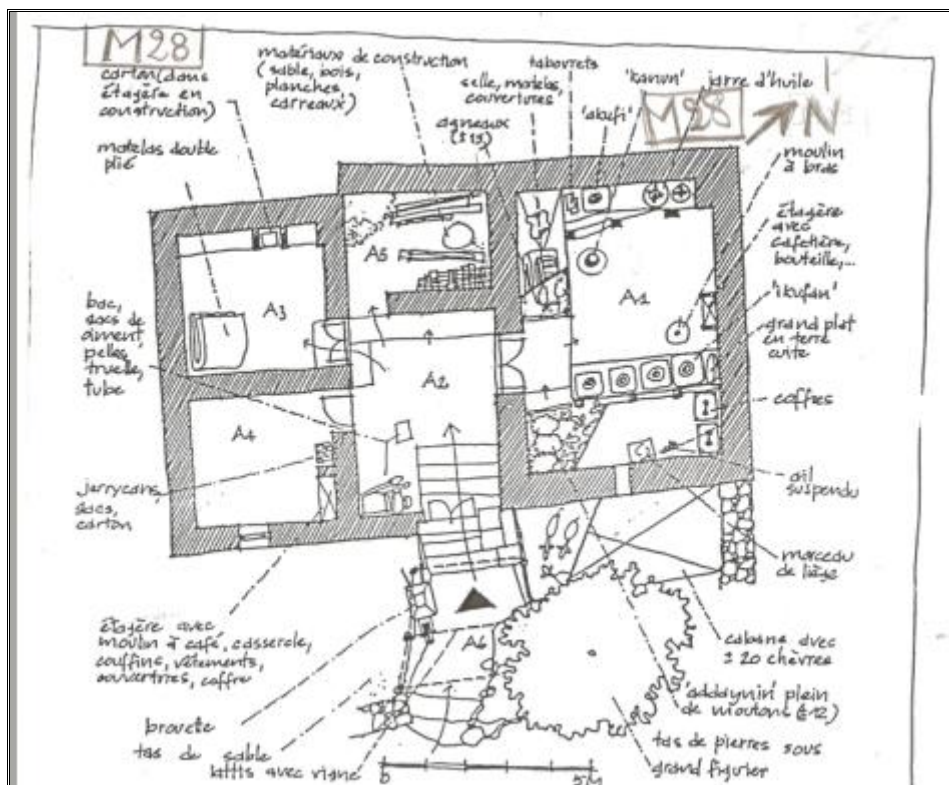 M28
carton (dans
étagère en
construction)
matelas double
plié
matériaux de construction
(sable, bois,
planches
carreaux)
agneaux
(±13)
selle, matelas,
couvertures
tabourets
'abufi'
'kanun'
jarre d'huile
M28
N
moulin
à bras
étagère
avec
cafetière,
bouteille,...
'ikufan'
grand plat
en terre
cuite
coffres
ail
suspendu
morceau
de liège
cabane avec
± 20 chèvres
'addaynin' plein
de moutons (±12)
tas de pierres sous
grand figuier
A5
A1
A3
A2
A4
A6
bac,
sacs de
ciment,
pelles,
truelle,
tube
jerrycans,
sacs,
carton
étagère avec
moulin à café, casserole,
couffins, vêtements,
couvertures, coffre
brouette
tas de sable
lattis avec vigne
0
5M